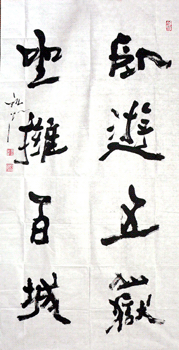 臥遊五嶽
坐擁百城